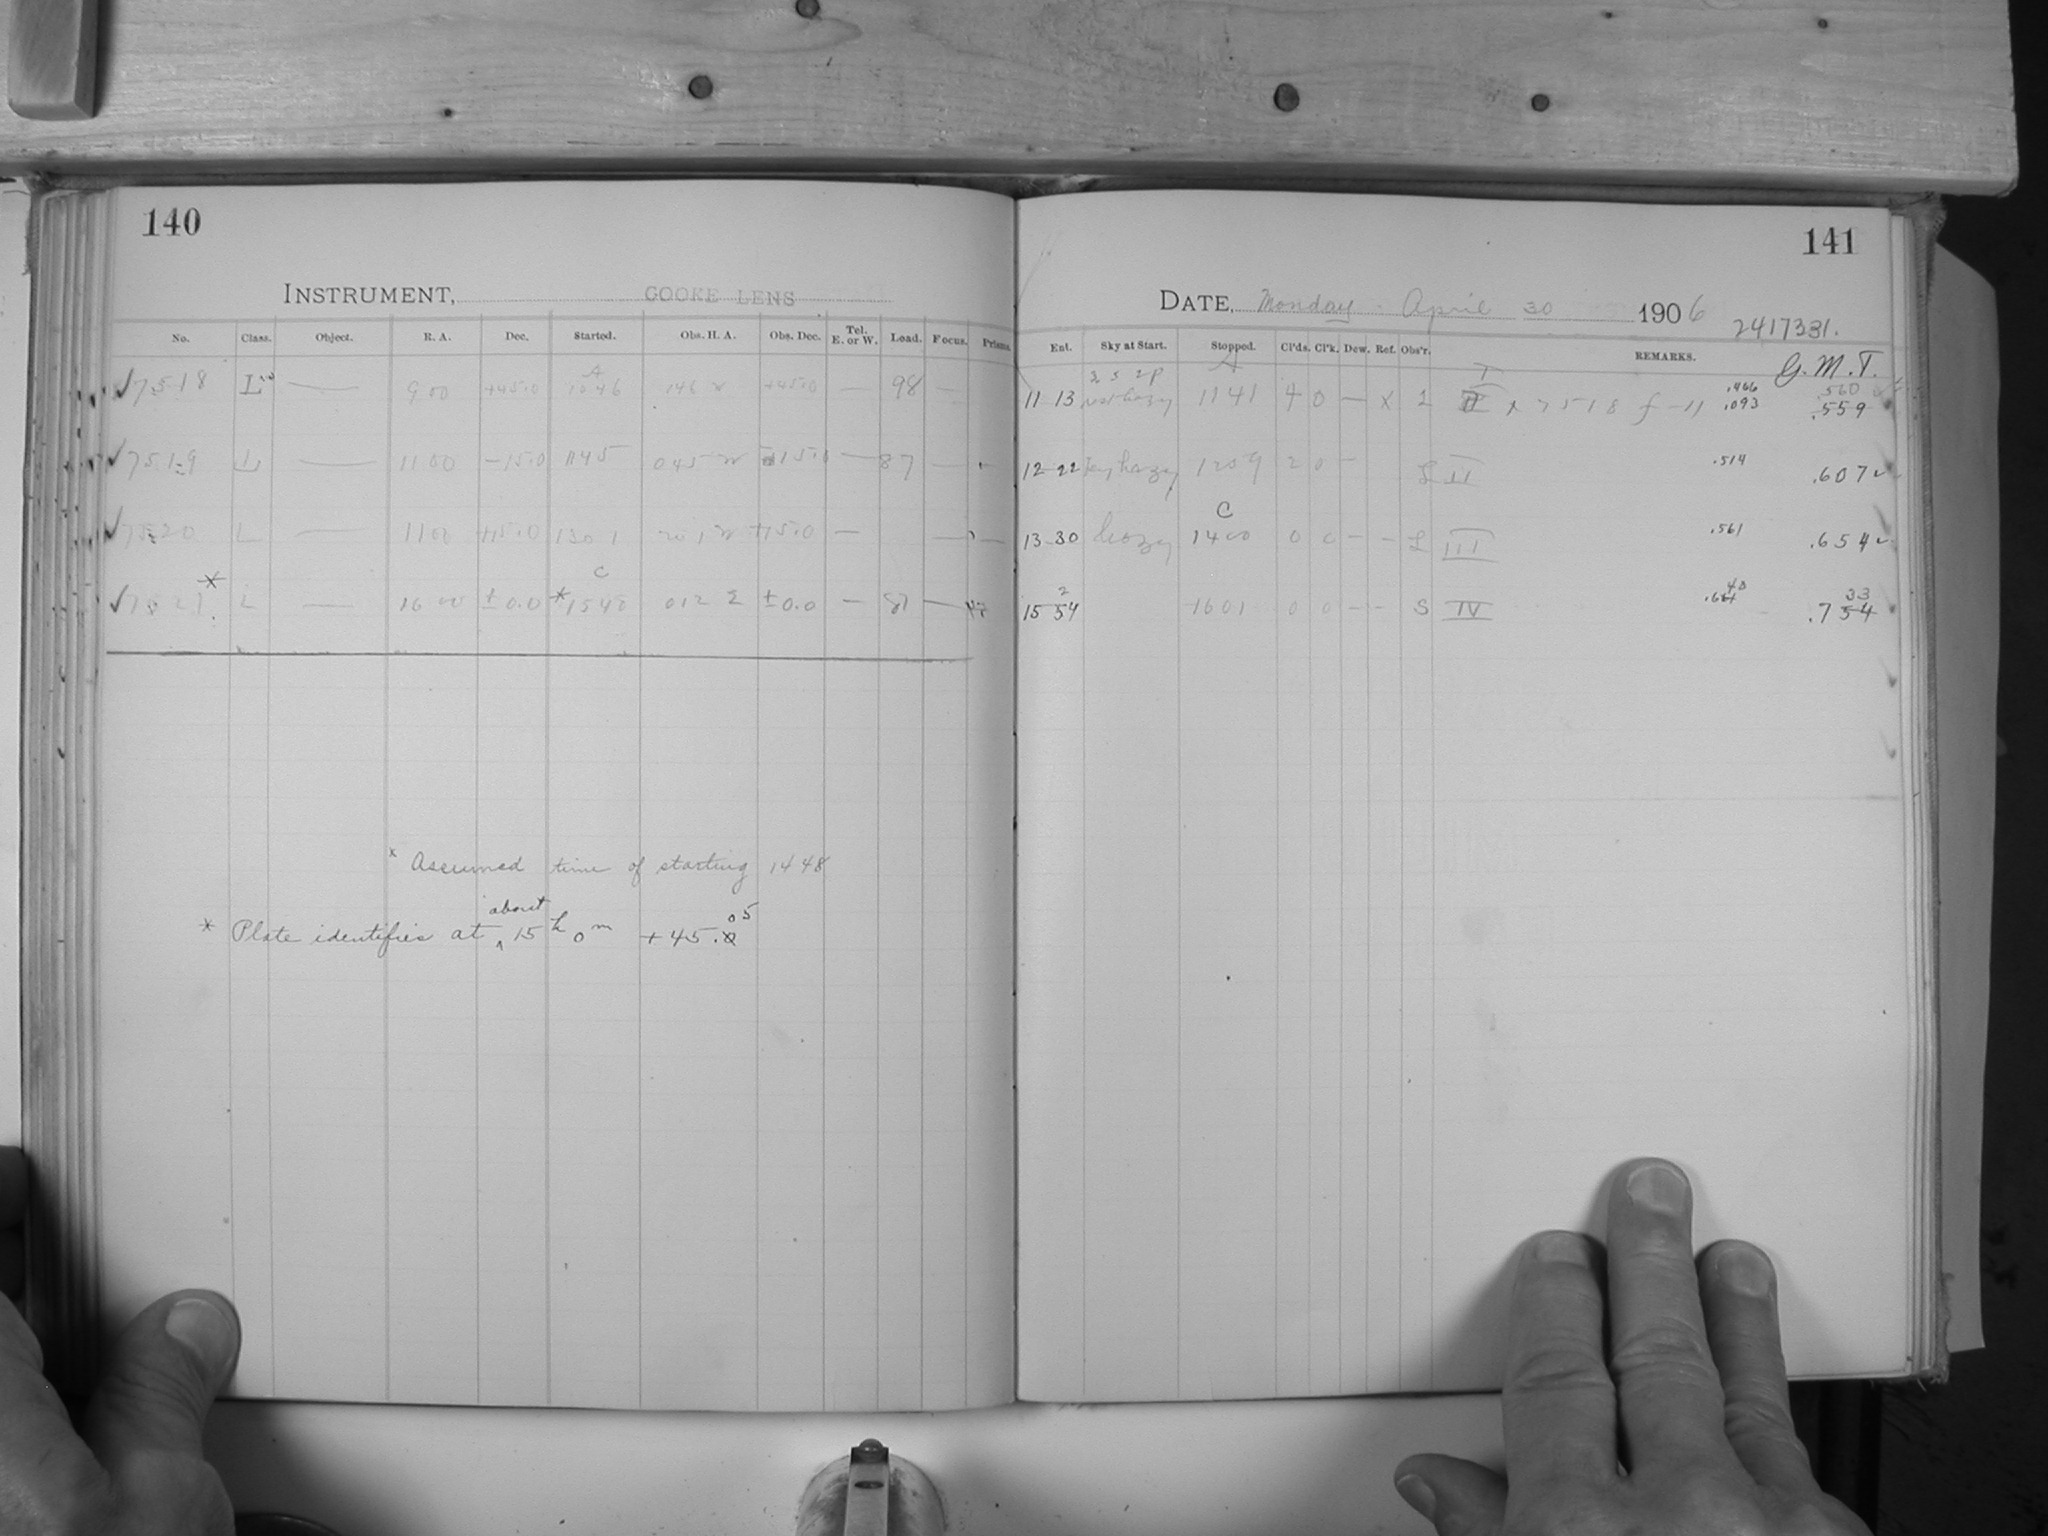 140
INSTRUMENT, COOKE LENS
No. Class. Object. R. A. Dec. Started. Obs. H. A. Obs. Dec. Tel. E. or W. Load. Focus. Prisms.
✓7518 L — 900 +45.0 A 1046 146 W +45.0 — 98 —
✓7519 L — 1100 -15.0 1145 045 W -15.0 — 87 —
✓7520 L — 1100 +15.0 1301 201 W +15.0 — —
✓7521* L — 1600 ±0.0 C *1548 012 E ±0.0 — 81 —
× Assumed time of starting 1448
* Plate identifies at about 15h 0m +45.05
141
DATE, Monday - April 30 1906
2417331.
Ent. Sky at Start. Stopped. Cl'ds. Cl'k. Dew. Ref. Obs'r. REMARKS. G. M. T.
11-13 hazy A 1141 4 0 — × L I × 7518 f-11 .466 .093 .560 .559
12-22 hazy 1209 2 0 — L II .514 .607✓
13-30 hazy C 1400 0 0 – – L III .561 .654✓
15-54 2 1601 0 0 – – S IV 40 33 .754